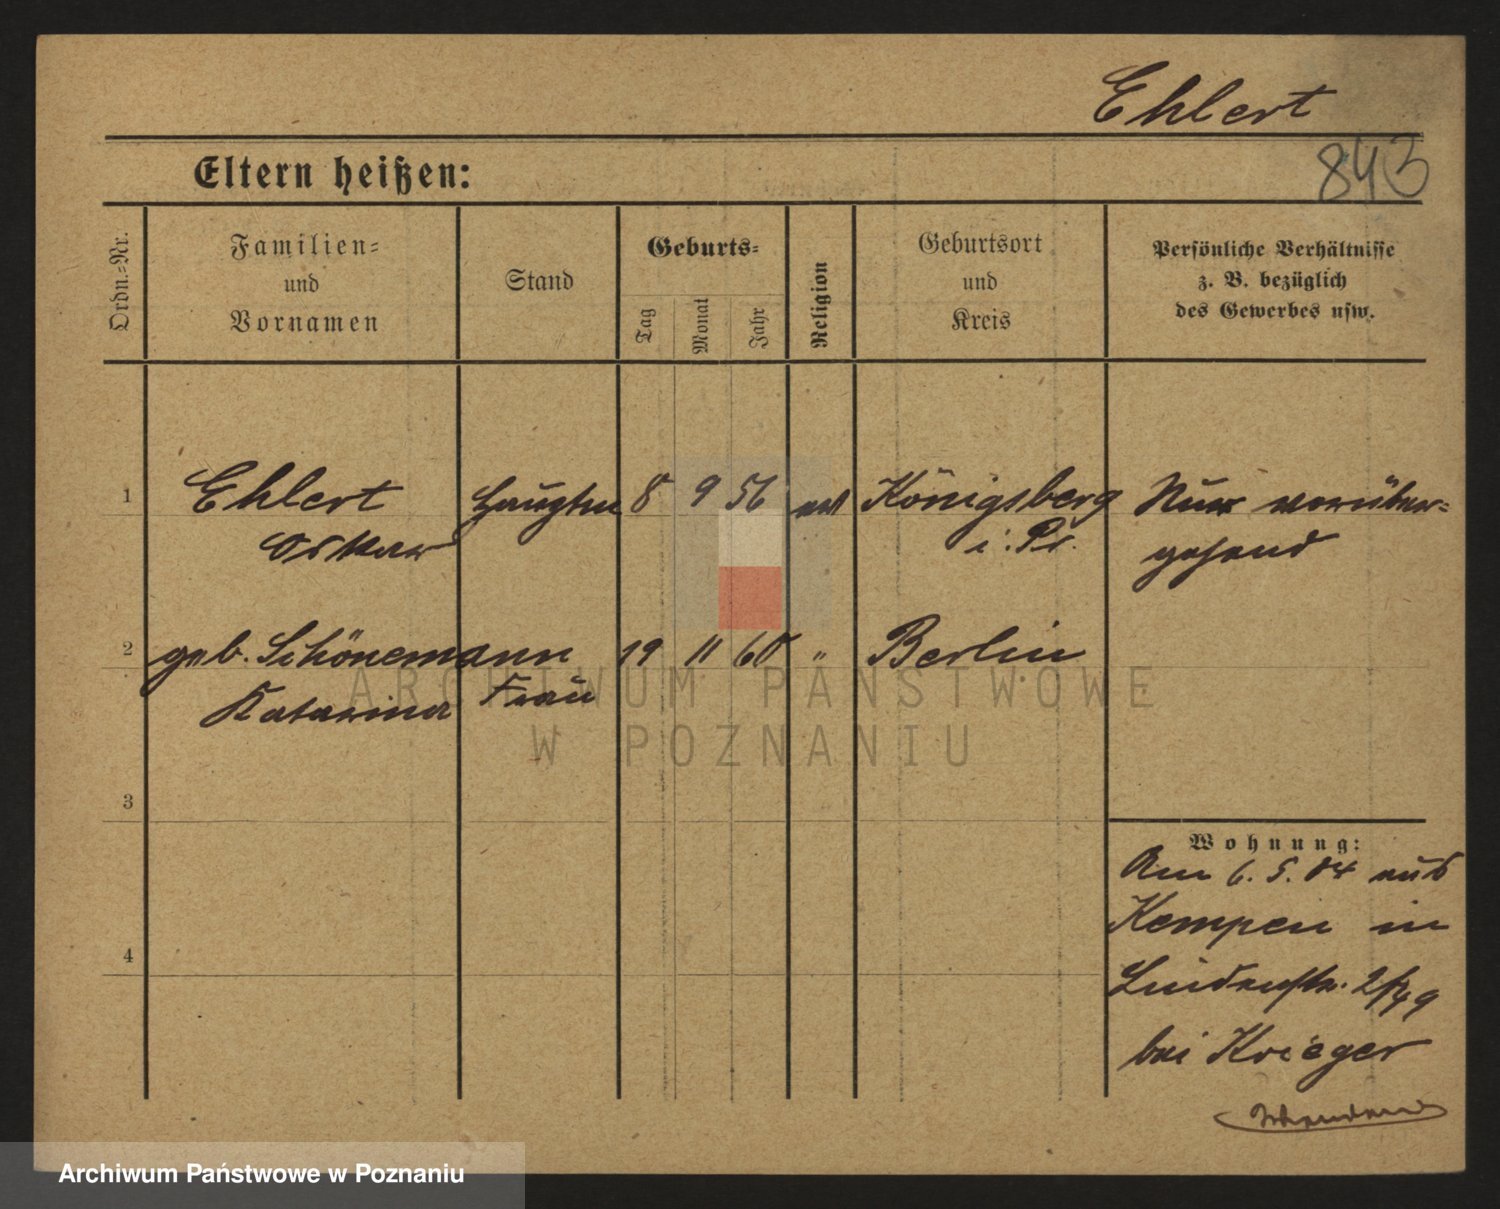 Ehlert
843
Eltern heißen:
Ordn.-Nr.
Familien-
und
Vornamen
Stand
Geburts-
Tag
Monat
Jahr
Religion
Geburtsort
und
Kreis
Persönliche Verhältnisse
z. B. bezüglich
des Gewerbes usw.
1 Ehlert 8 9 56 ev Königsberg Nur vorüber-
Oskar i. Pr. gehend
2 geb. Schönemann 19 11 60 " Berlin
Katarina Frau
3
4
Wohnung:
Am 6. 5. 04 aus
Kempen in
Lindenstr.
bei Krieger
ARCHIWUM PAŃSTWOWE
W POZNANIU
Archiwum Państwowe w Poznaniu